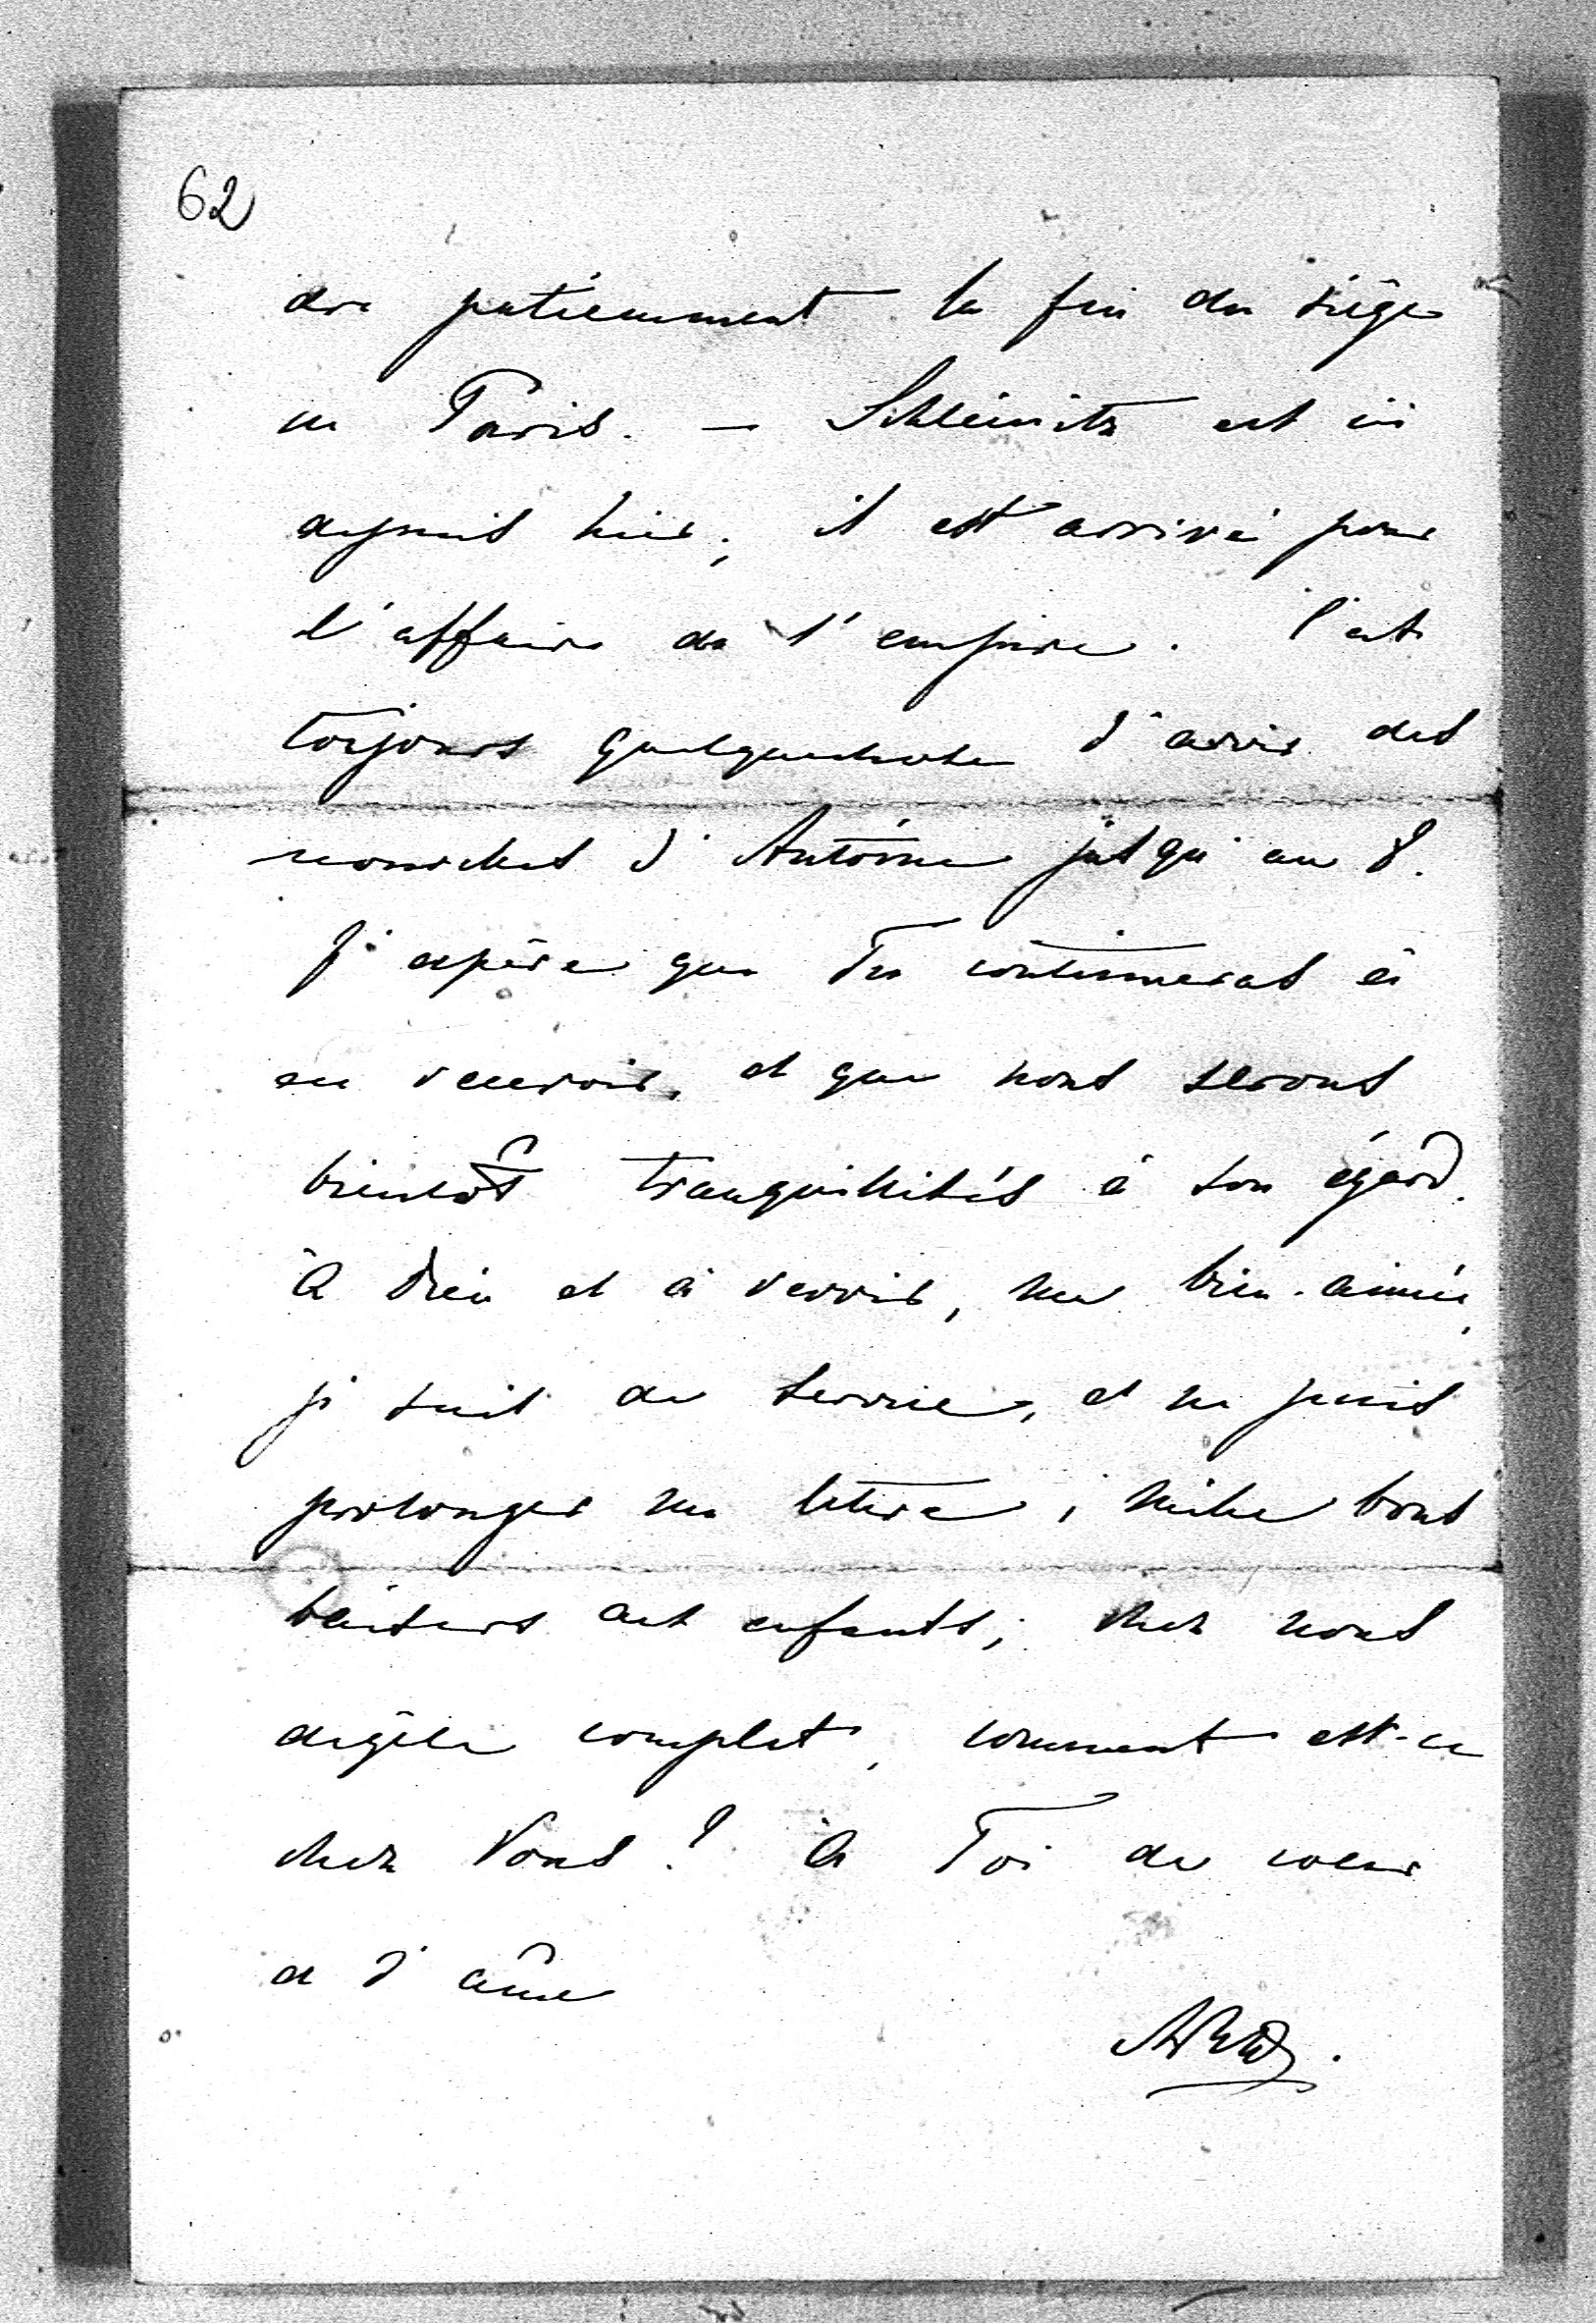 62
dre patiemment la fin du siège
de Paris. — Schleinitz est ici
depuis hier; il est arrivé pour
l'affaire de l'empire. C'est
toujours quelquechose d'avoir des
nouvelles d'Antoine jusqu'au 8.
J'espère que Tu continueras à
en recevoir, et que nous serons
bientôt tranquillisés à son égard.
à Dieu et à revoir, ma bien-aimée,
je suis de service, et ne puis
prolonger ma lettre; mille bons
baisers aux enfants; chez nous
dégèle complet, comment est-ce
chez Vous? à Toi de coeur
et d'âme